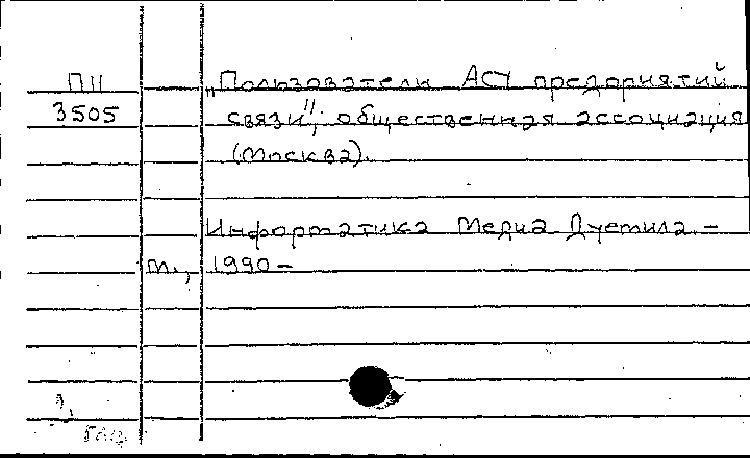 П11 „Пользователи АСУ предприятий
3505 связи", общественная ассоциация
(Москва).
Информатика Медиа
М., 1990 –